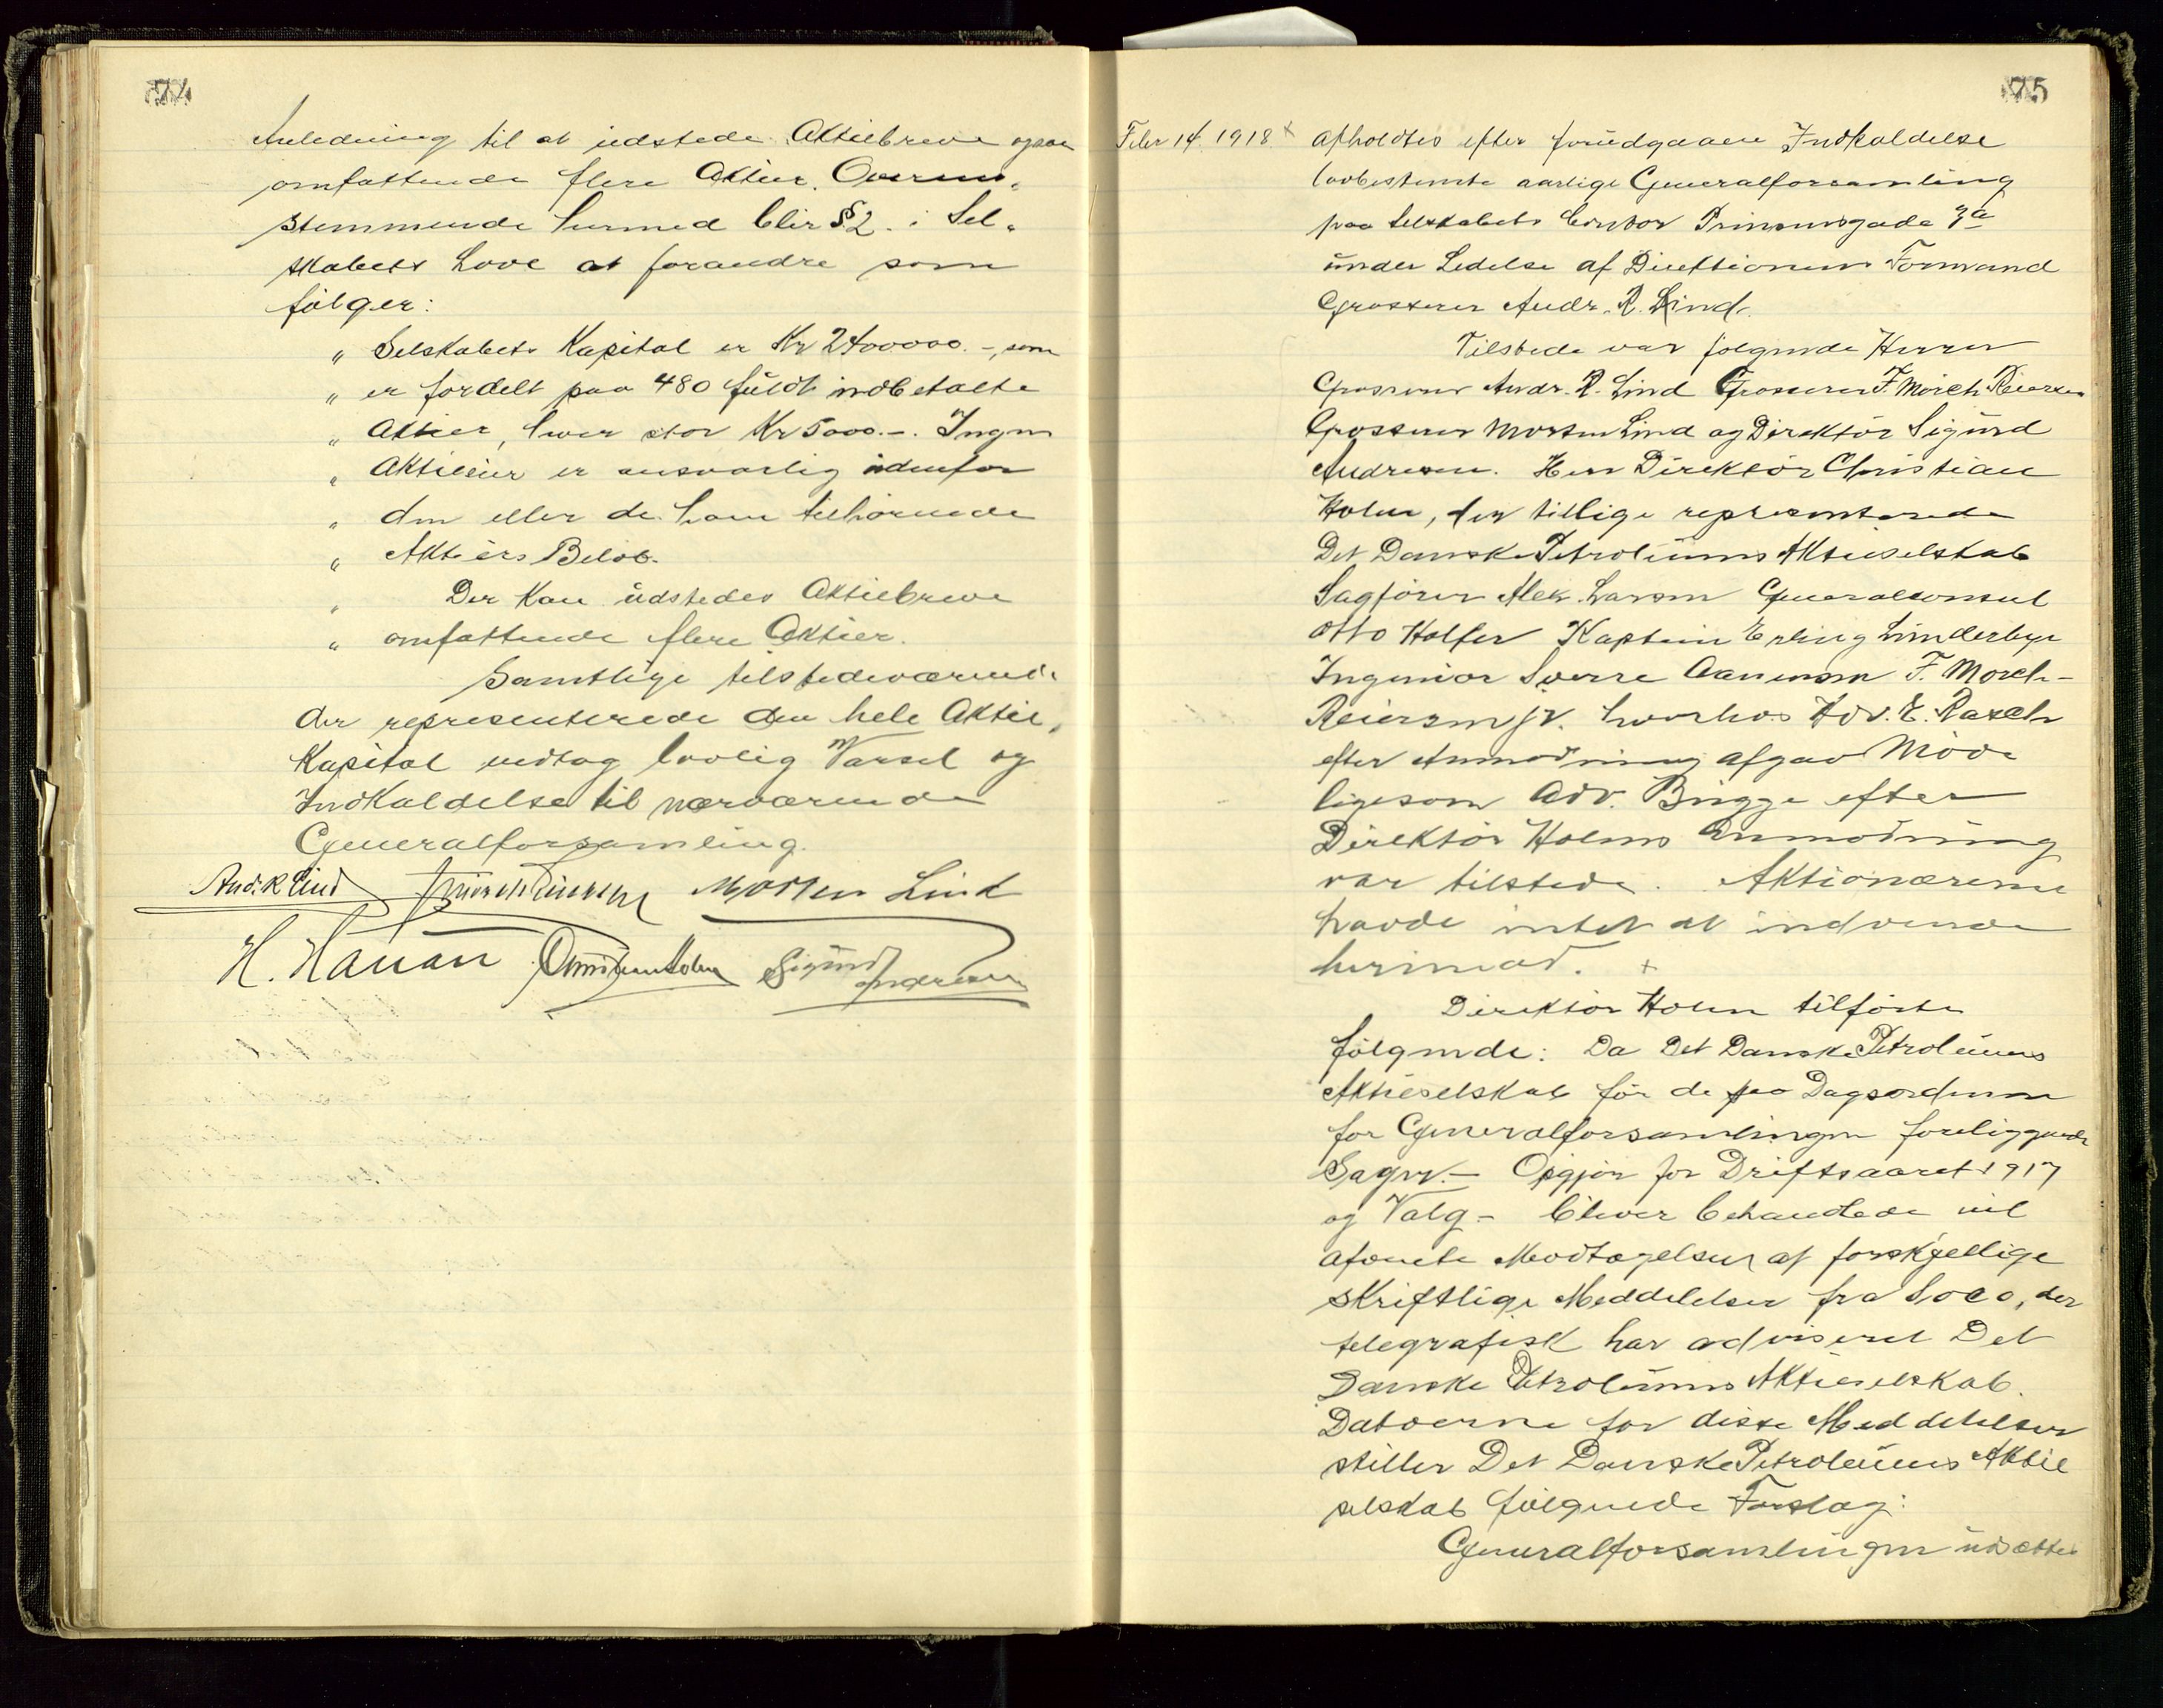 74
Anledning til at udstede Aktiebreve ogsaa
omfattende flere Aktier. Overens-
stemmende hermed blir § 2. i Sel-
skabets Love at forandre som
følger:
" Selskabets Kapital er Kr 2400000.-, som
" er fordelt paa 480 fuldt indbetalte
" Aktier, hver stor Kr 5000.-. Ingen
" Aktieeier er ansvarlig udenfor
" den eller de ham tilhørende
" Aktiers Beløb.
" Der kan udstedes Aktiebreve
" omfattende flere Aktier.
Samtlige tilstedeværende
der representerede den hele Aktie-
kapital vedtog lovlig Varsel og
Indkaldelse til nærværende
Generalforsamling.
Andr. R Lind F Mørch Reiersen Morten Lind
H. Hanan Christian Holm Sigurd
Andresen
75
Febr 14 1918 x afholdtes efter forudgaaen Indkaldelse
lovbestemte aarlige Generalforsamling
paa Selskabets Contor Prinsensgade 3a
under Ledelse af Direktionens Formand
Grosserer Andr. R. Lind.
Tilstede var følgende Herrer
Grosserer Andr. R. Lind Grosserer F. Mørch Reiersen
Grosserer Morten Lind og Direktør Sigurd
Andresen. Herr Direktør Christian
Holm, der tillige representerede
Det Danske Petroleums Aktieselskab
Sagfører Alex. Larsen Generalconsul
Otto Halfer Kaptein Erling Linderbye
Ingeniør Sverre Aanensen F. Mørch-
Reiersen jr. hvorhos Adv. E. Rasch
efter Anmodning afgav Møde
ligesom Adv. Bugge efter
Direktør Holms Anmodning
var tilstede. Aktionærerne
havde intet at indvende
herimod. x
Direktør Holm tilførte
følgende: Da Det Danske Petroleums
Aktieselskab før de paa Dagsordenen
for Generalforsamlingen foreliggende
Sager. - Opgjør for Driftsaaret 1917
og Valg - bliver behandlede vil
afvente Modtagelsen af forskjellige
skriftlige Meddelelser fra Soco, der
telegrafisk har adviseret Det
Danske Petroleums Aktieselskab.
Datoerne for disse Meddelelser
stiller Det Danske Petroleums Aktie
selskab følgende Forslag:
Generalforsamlingen udsættes